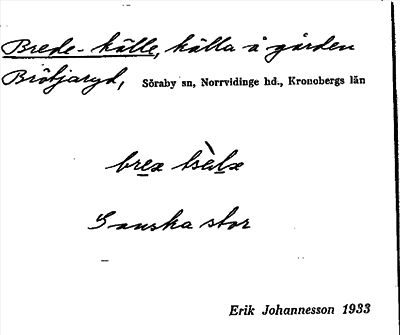 Brede-källe, källa å gården
Brötjaryd, Söraby sn, Norrvidinge hd., Kronobergs län
Ganska stor
Erik Johannesson 1933